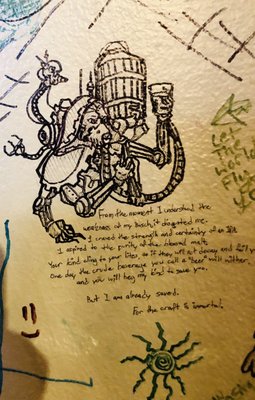 From the moment I understood the
weakness of my Bosch, it disgusted me.
I craved the strength and certainty of an IPA
I aspired to the purity of the ribbond malt.
Your kind cling to your lites, as if they will not decay and fail you
One day the crude beverage you call a "beer" will wither,
and you will beg my kind to save you.
But I am already saved.
For the craft is immortal.
Let
The
World